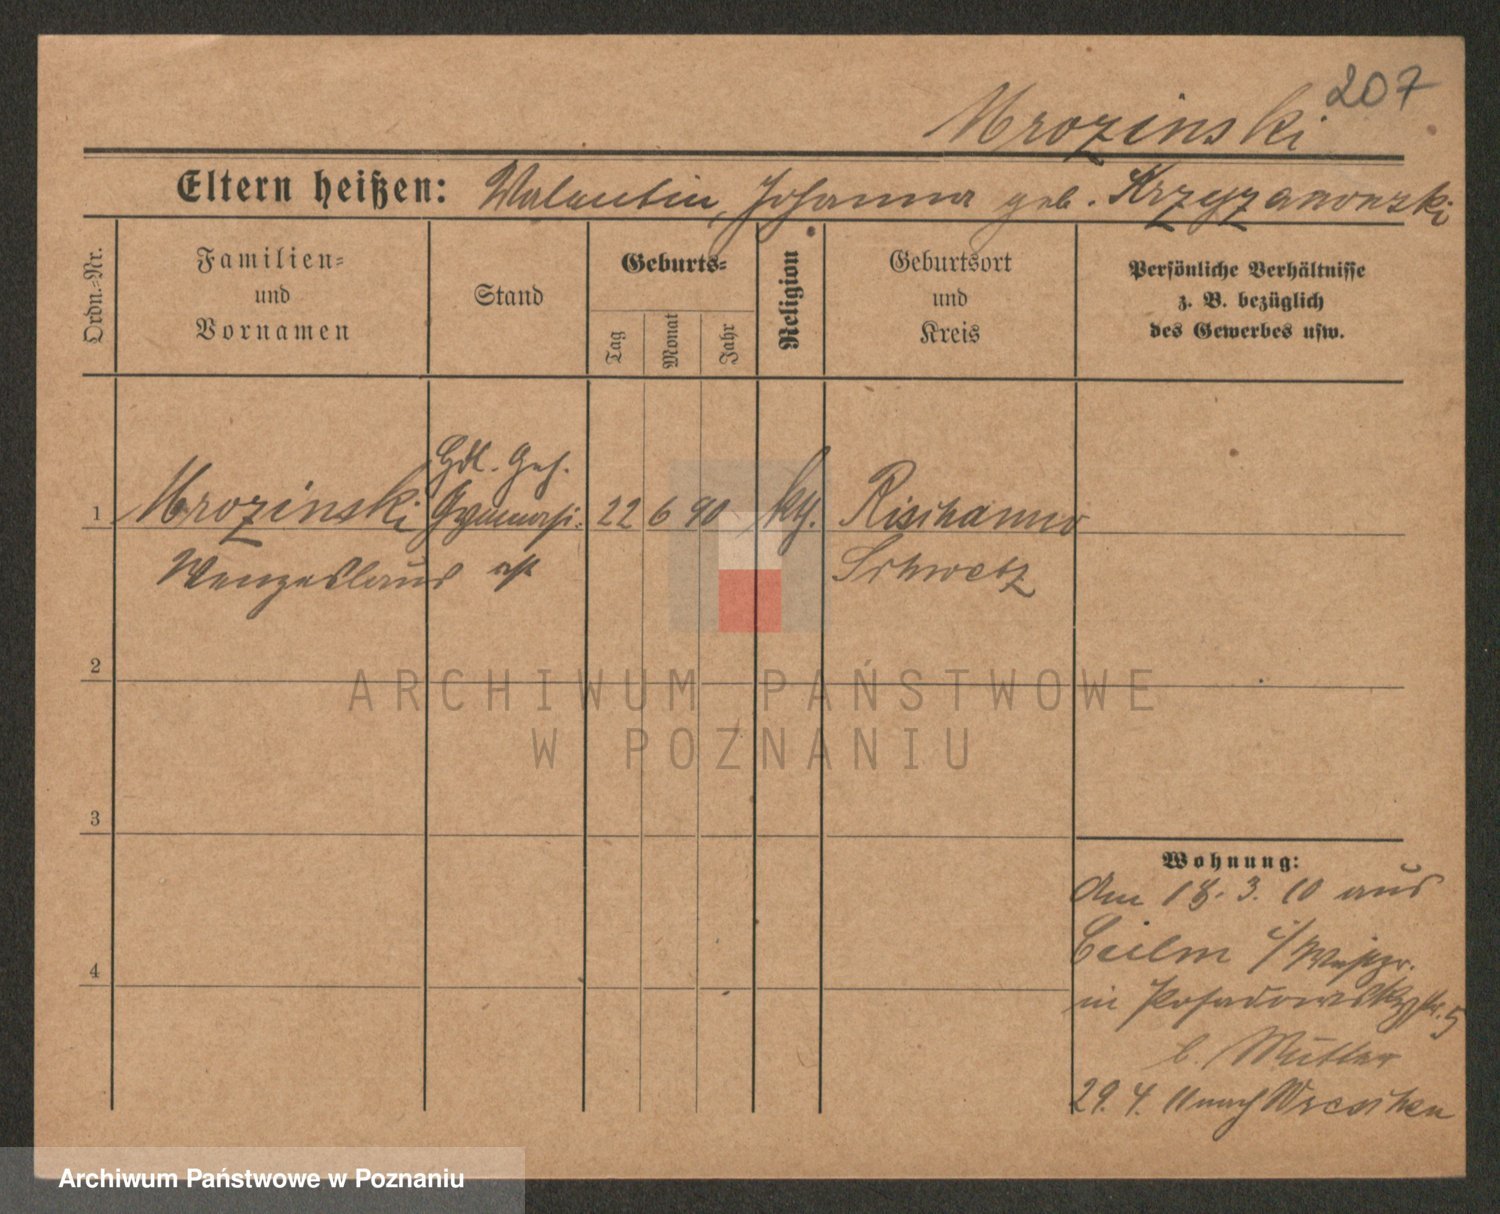 207
Mrozinski
Eltern heißen: Valentin, Johanna geb. Krzyzanowski
Ordn.=Nr.
Familien=
und
Vornamen
Stand
Geburts=
Tag
Monat
Jahr
Religion
Geburtsort
und
Kreis
Persönliche Verhältnisse
z. B. bezüglich
des Gewerbes usw.
Hdl. Geh.
1 Mrozinski Gymnasi= 22 6 90 kth. Rischanno
Wenzeslaus ast Schwetz
2
3
4
Wohnung:
Am 18. 3. 10 aus
i/Wespr.
in Posadowskystr. 5
b. Mutter
29. 4. 11 nach Wreschen
ARCHIWUM PAŃSTWOWE
W POZNANIU
Archiwum Państwowe w Poznaniu